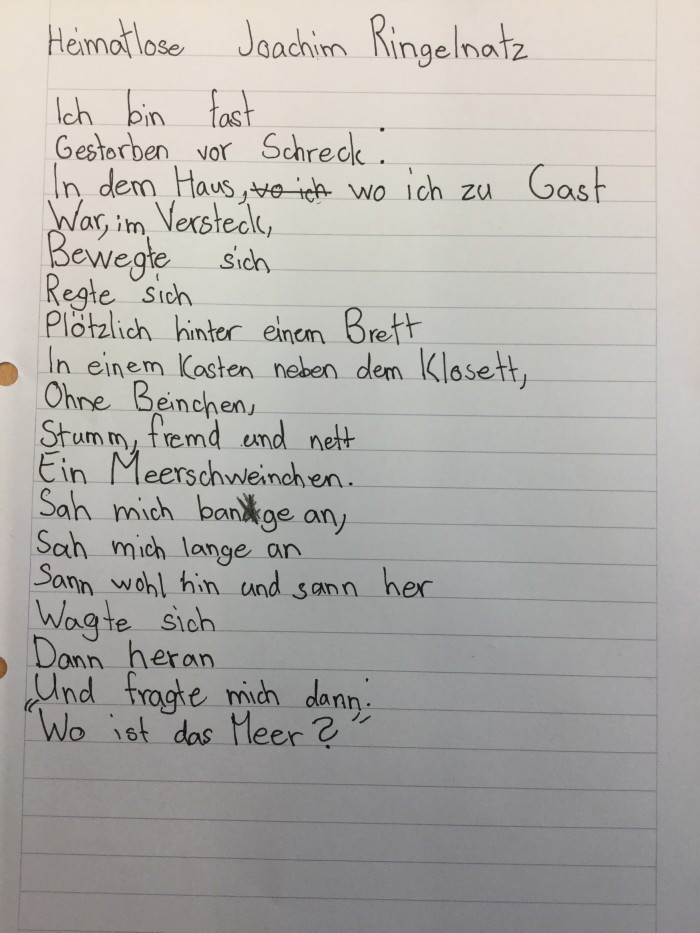 Heimatlose Joachim Ringelnatz
Ich bin fast
Gestorben vor Schreck:
In dem Haus, vo ich wo ich zu Gast
War, im Versteck,
Bewegte sich
Regte sich
Plötzlich hinter einem Brett
In einem Kasten neben dem Klosett,
Ohne Beinchen,
Stumm, fremd und nett
Ein Meerschweinchen.
Sah mich bange an,
Sah mich lange an
Sann wohl hin und sann her
Wagte sich
Dann heran
Und fragte mich dann:
"Wo ist das Meer?"